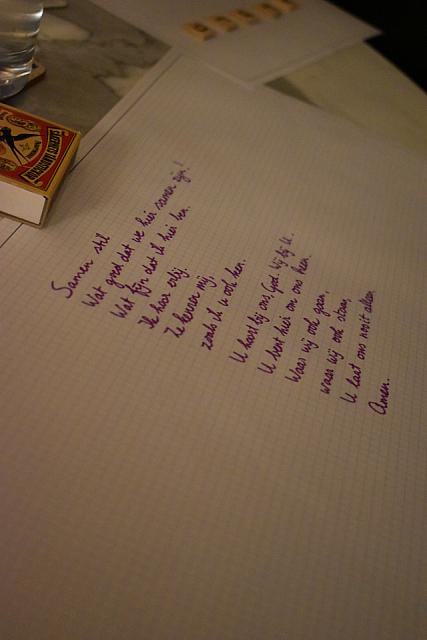 Samen stil
Wat goed dat we hier samen zijn!
Wat fijn dat ik hier ben.
Ik hoor erbij.
Ze kennen mij,
zoals ik u ook ken.
U hoort bij ons, God, wij bij U.
U bent hier om ons heen.
Waar wij ook gaan,
waar wij ook staan,
U laat ons nooit alleen.
Amen.